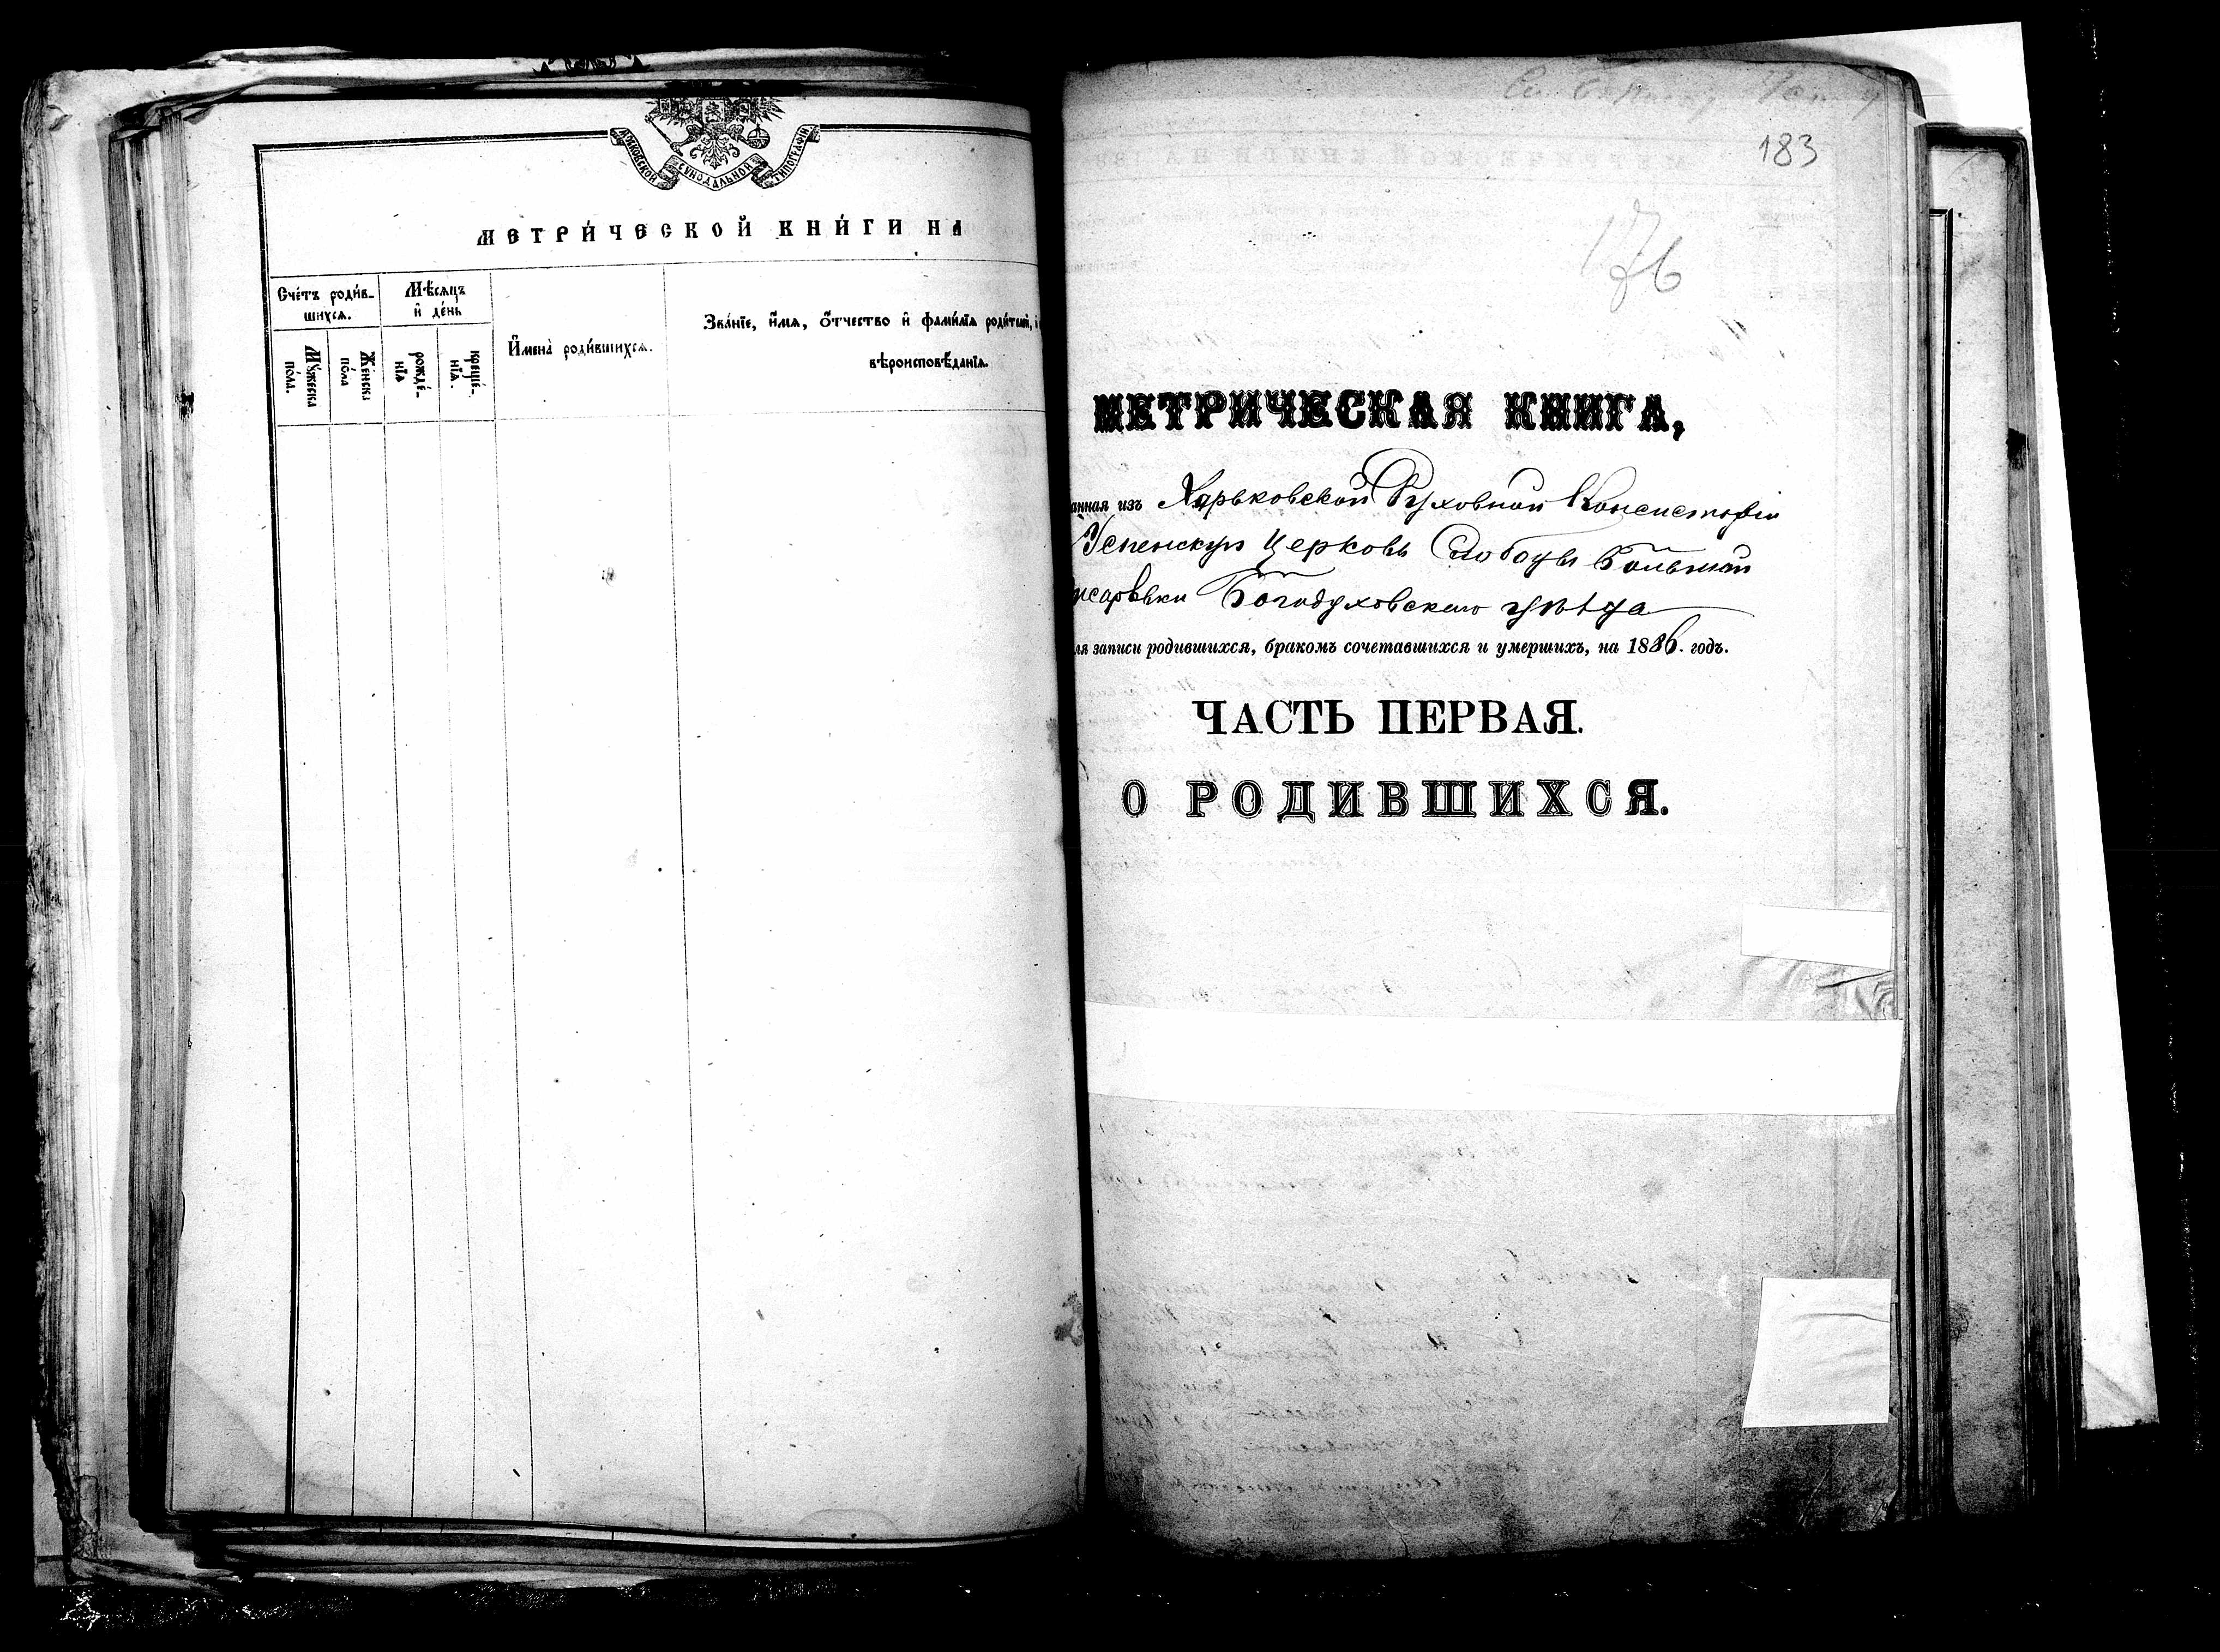 МОСКОВСКОЙ СѴНОДАЛЬНОЙ ТИПОГРАФІИ
МЕТРИ́ЧЕСКОЙ КНИ́ГИ НА
Счéтъ роди́в-
шихсѧ.
Мѣ́сѧцъ
и҆ дéнь
И҆менà роди́вшихсѧ.
Звáнїе, и҆́мѧ, ѻ҆́тчество и҆ фами́лїѧ роди́телей, и҆
вѣроисповѣ́данїѧ.
Мꙋ́жеска
пóла.
Жéнска
пóла
рождé-
нїѧ
крещé-
нїѧ.
183
176
МЕТРИЧЕСКАЯ КНИГА,
анная изъ Харьковской Духовной Консисторіи
Успенскую Церковь Слободы Большой
исаревки Богодуховскаго уѣзда
ля записи родившихся, бракомъ сочетавшихся и умершихъ, на 1886. годъ.
ЧАСТЬ ПЕРВАЯ.
О РОДИВШИХСЯ.